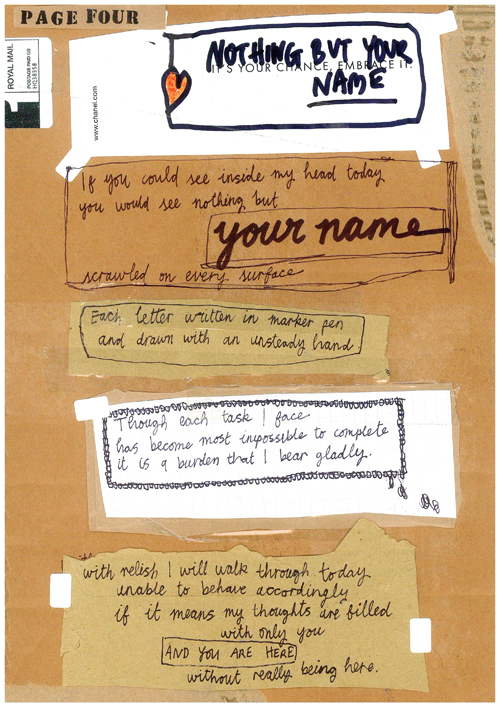 PAGE FOUR
ROYAL MAIL
POSTAGE PAID GB
HQ38358
NOTHING BUT YOUR
IT'S YOUR CHANCE, EMBRACE IT.
NAME
www.chanel.com
If you could see inside my head today
you would see nothing but
your name
scrawled on every surface
Each letter written in marker pen
and drawn with an unsteady hand
Though each task I face
has become most impossible to complete
it is a burden that I bear gladly.
with relish I will walk through today
unable to behave accordingly
if it means my thoughts are filled
with only you
AND YOU ARE HERE
without really being here.